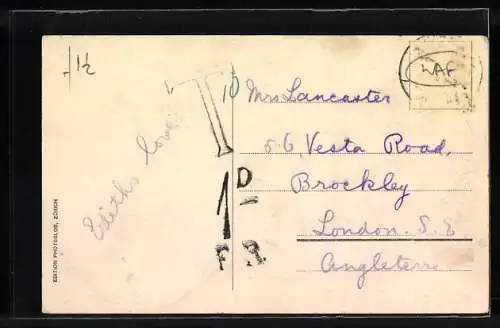 1½
T
10
1D
F 3
Ediths love
EDITION PHOTOGLOB, ZÜRICH
Mrs Lancaster
56, Vesta Road,
Brockley
London. S. E.
Angleterre